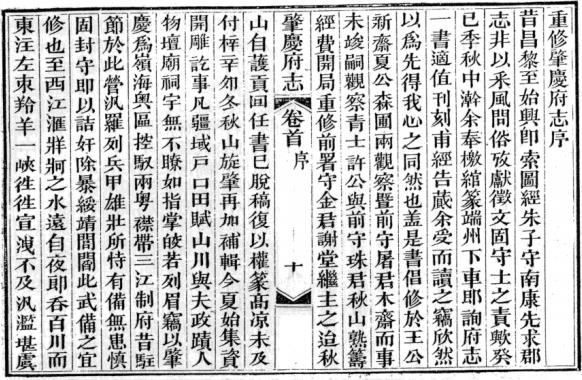 重修肇慶府志序
昔昌黎至始興卽索圖經朱子守南康先求郡
志非以采風問俗攷獻徵文固守士之責歟癸
巳季秋中澣余奉檄綰篆端州下車郎詢府志
一書適值刊刻甫經告蕆余受而讀之竊欣然
以爲先得我心之同然也蓋是書倡修於王公
新齋夏公森圃兩觀察暨前守屠君木齋而事
未竣嗣觀察青士許公與前守珠君秋山熟籌
經費開局重修前署守金君謝堂繼主之迨秋
肇慶府志
卷首
序
十
山自護貢囬任書已脫稿復以權篆高凉未及
付梓辛卯冬秋山旋肇再加補輯今夏始集資
開雕訖事凡疆域戶口田賦山川與夫政蹟人
物壇廟祠宇無不瞭如指掌皎若列眉竊以肇
慶爲嶺海奧區控馭兩粵襟帶三江制府昔駐
節於此營汛羅列兵甲雄壯所恃有備無患慎
固封守卽以詰奸除暴綏靖閭閻此武備之宜
修也至西江滙牂牁之水遠自夜郎吞百川而
東汪左束羚羊一峽徃徃宣洩不及汎濫堪虞